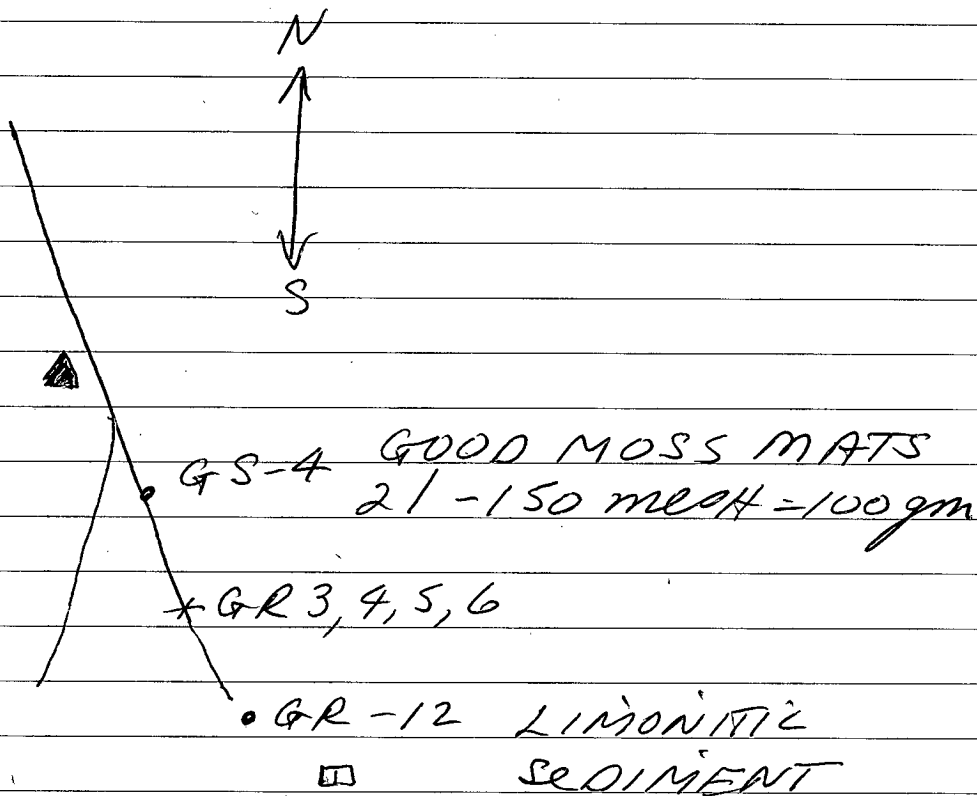 N
S
GS-4 GOOD MOSS MATS
21-150 mesH = 100 gm
GR 3, 4, 5, 6
GR-12 LIMONITIC
SeDIMENT